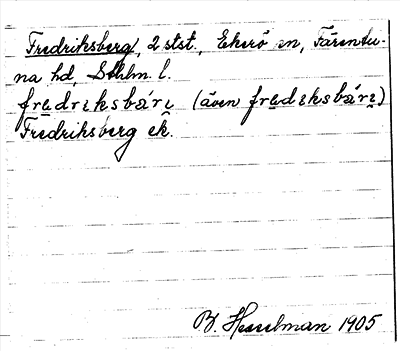 Fredriksberg, 2 stst., Ekerö sn, Färentu-
na hd, Sthlm. l.
fredriksbárı (även frediksbárı)
Fredriksberg ek.
B. Hesselman 1905